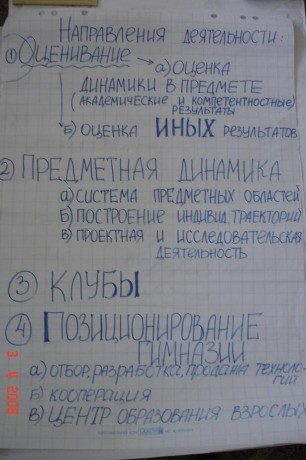 Направления деятельности:
① Оценивание → а) Оценка
динамики в предмете
(академические и компетентностные)
результаты
б) оценка иных результатов
② Предметная динамика
а) система предметных областей
б) построение индивид. траекторий
в) проектная и исследовательская
деятельность
③ Клубы
④ Позиционирование
гимназии
а) отбор, разработка, продажа техноло-
гий
б) кооперация
в) центр образования взрослых